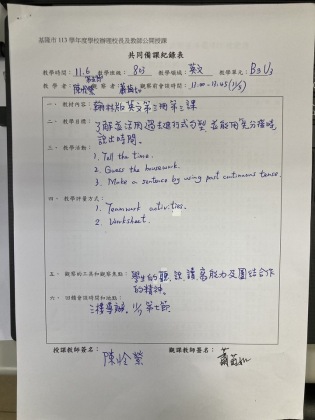 基隆市 113 學年度學校辦理校長及教師公開授課
共同備課紀錄表
教學時間：11.6 教學班級：803 教學領域：英文 教學單元：B3U3
教學者： 觀察者 觀察前會談時間：11:00-11:45 (11/5)
一、教材內容：翰林版英文第三冊第三課
二、教學目標：
了解並活用過去進行式句型，並能用英文描時
說出時間。
三、教學活動：
1. Tell the time.
2. Guess the housework.
3. Make a sentence by using past continuous tense.
四、教學評量方式：
1. Teamwork activities.
2. Worksheet.
五、觀察的工具和觀察焦點：學生的聽、說、讀、寫能力及團結合作
的精神。
六、回饋會談時間和地點：
二樓導辦，第七節
授課教師簽名： 觀課教師簽名：